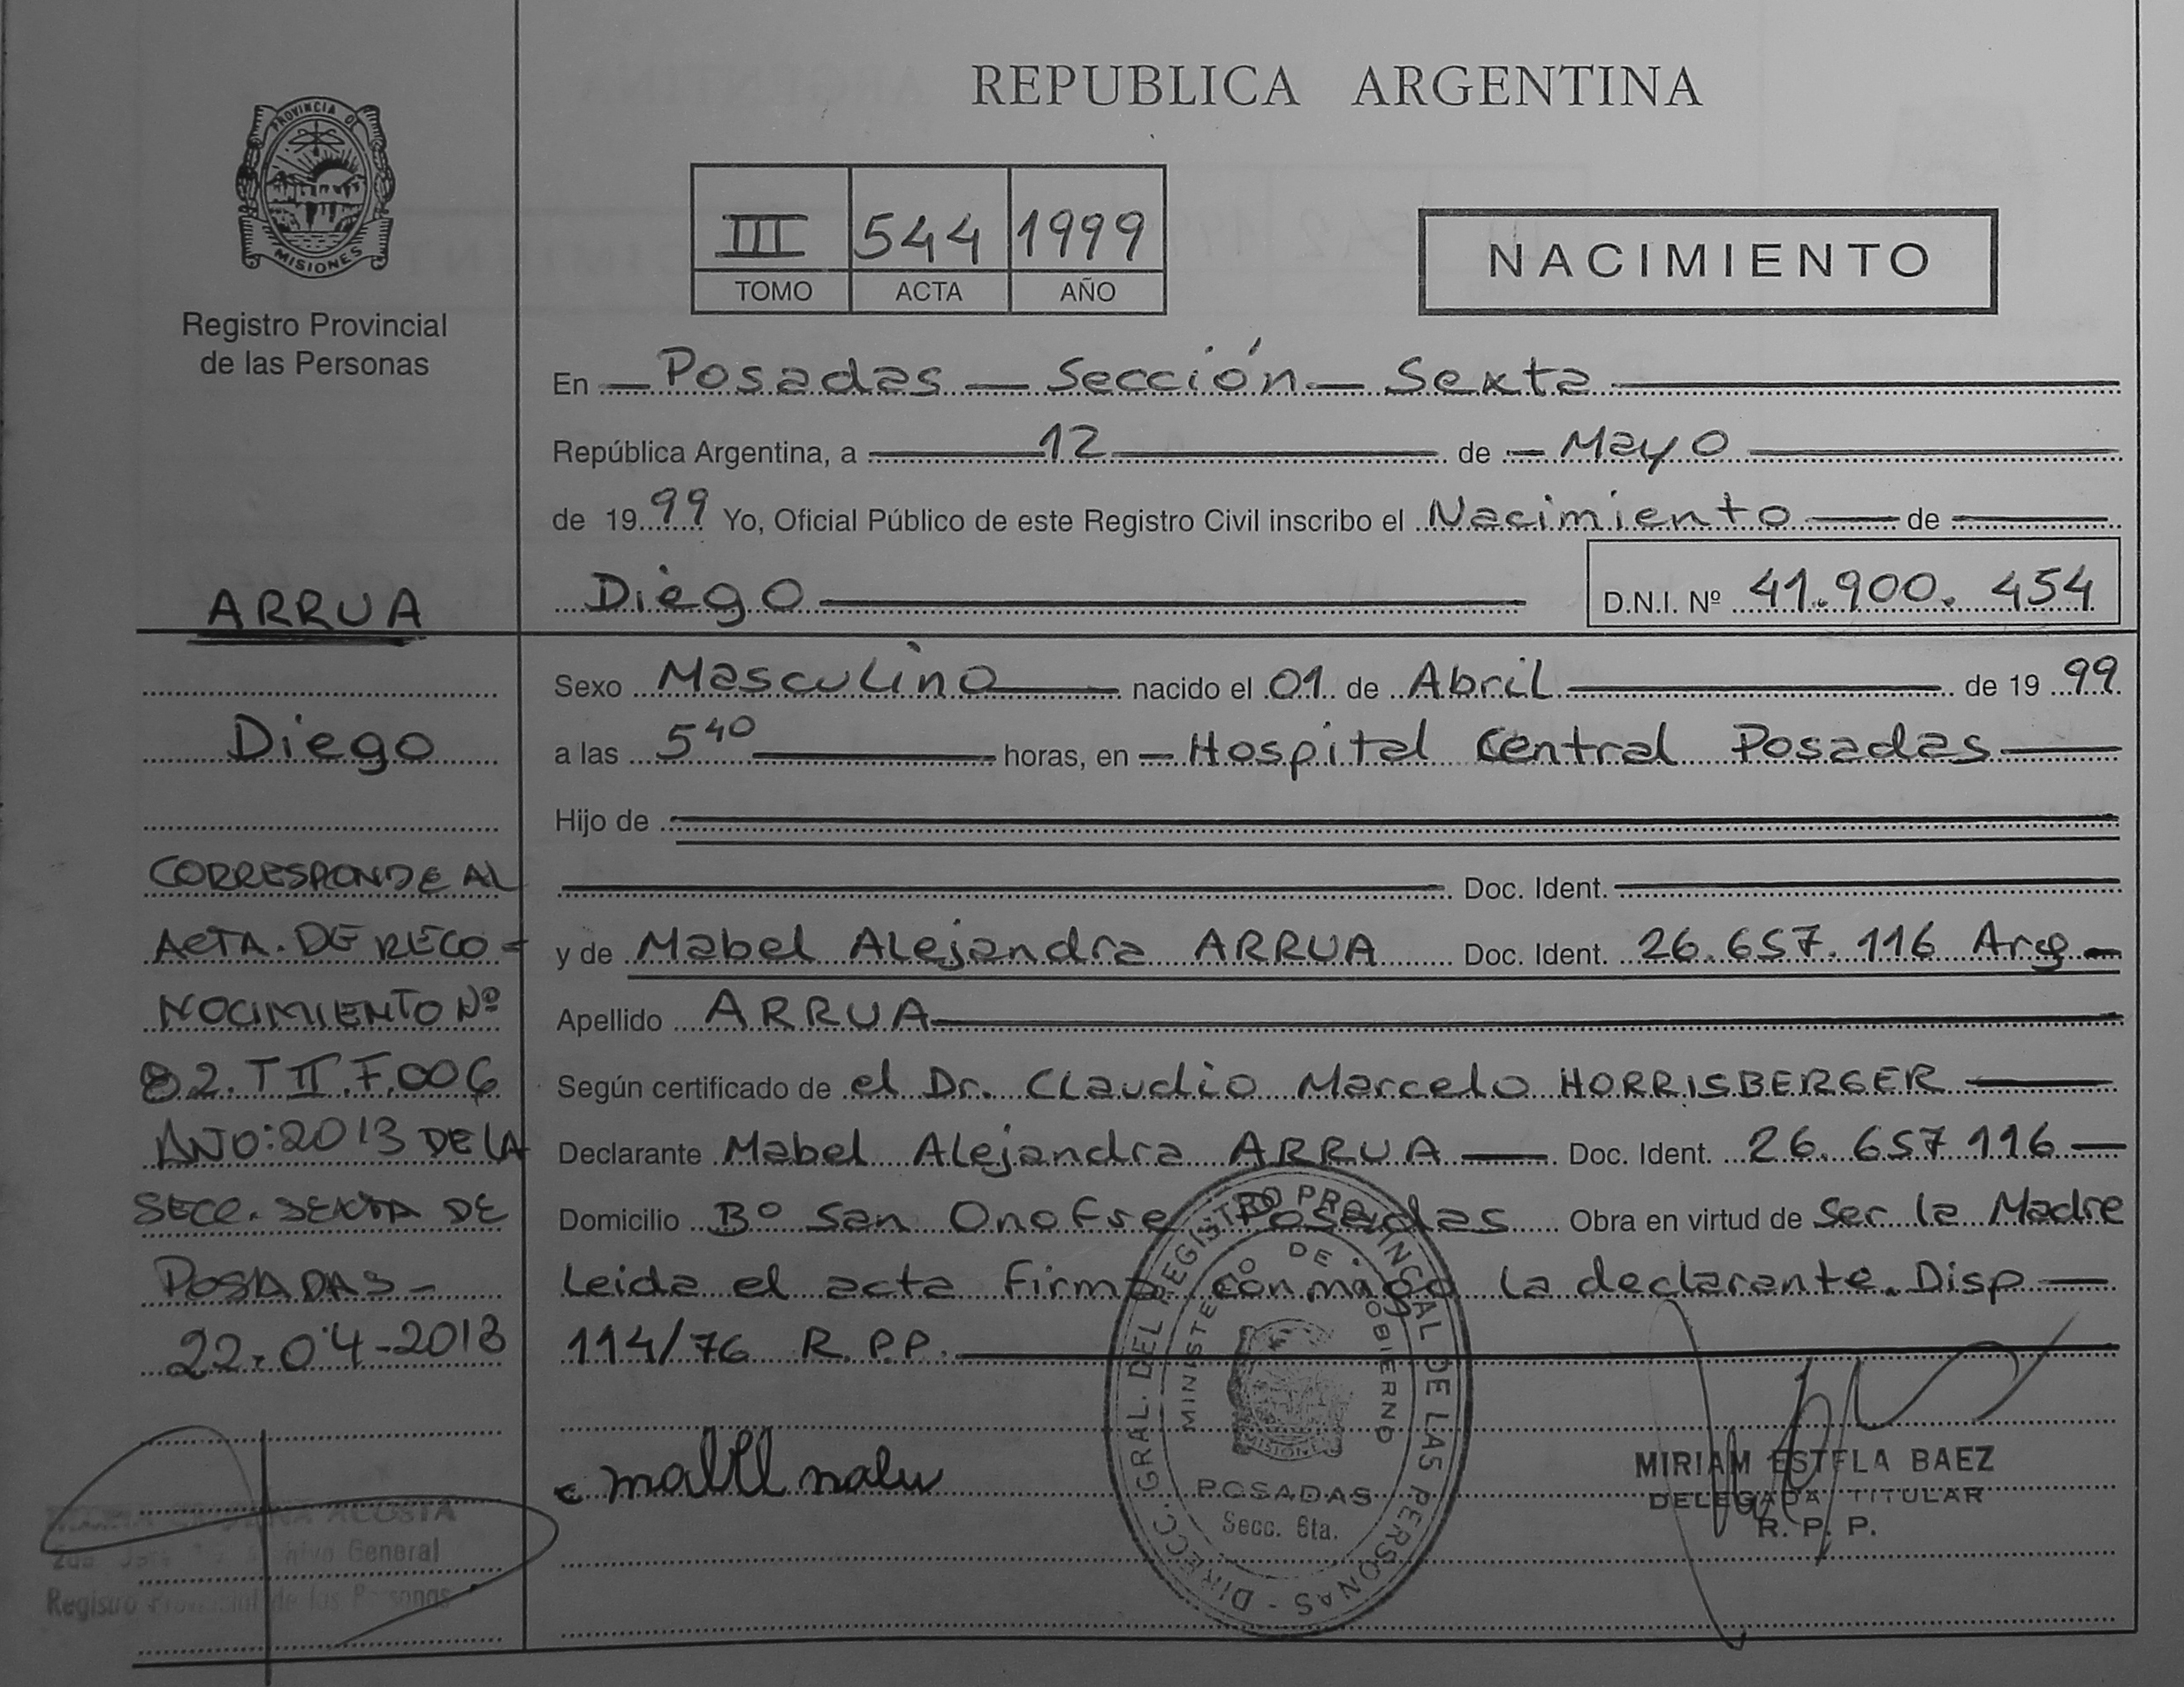 REPUBLICA ARGENTINA
PROVINCIA DE
MISIONES
Registro Provincial
de las Personas
III 544 1999
TOMO ACTA AÑO
NACIMIENTO
En Posadas Sección Sexta
República Argentina, a 12 de Mayo
de 1999 Yo, Oficial Público de este Registro Civil inscribo el Nacimiento de
Diego D.N.I. Nº 41.900.454
Sexo Masculino nacido el 01 de Abril de 1999
a las 5 40 horas, en Hospital Central Posadas
Hijo de
Doc. Ident.
y de Mabel Alejandra ARRUA Doc. Ident. 26.657.116 Arg
Apellido ARRUA
Según certificado de el Dr. Claudio Marcelo HORRISBERGER
Declarante Mabel Alejandra ARRUA Doc. Ident. 26.657 116
Domicilio Bº San Onofre Posadas Obra en virtud de Ser la Madre
Leida el acta firma conmigo la declarante. Disp
114/76 R.P.P.
ARRUA
Diego
CORRESPONDE AL
ACTA. DE RECO=
NOCIMIENTO Nº
82. T II. F.006
AÑO:2013 DE LA
SECC. SEXTA DE
POSADAS-
22-04-2013
ACOSTA
General
Registro Provincial de las Personas
DIRECC. GRAL. DEL REGISTRO PROVINCIAL DE LAS PERSONAS -
MINISTERIO DE GOBIERNO
MISIONES
POSADAS
Secc. 6ta.
MIRIAM ESTELA BAEZ
DELEGADA TITULAR
R. P. P.